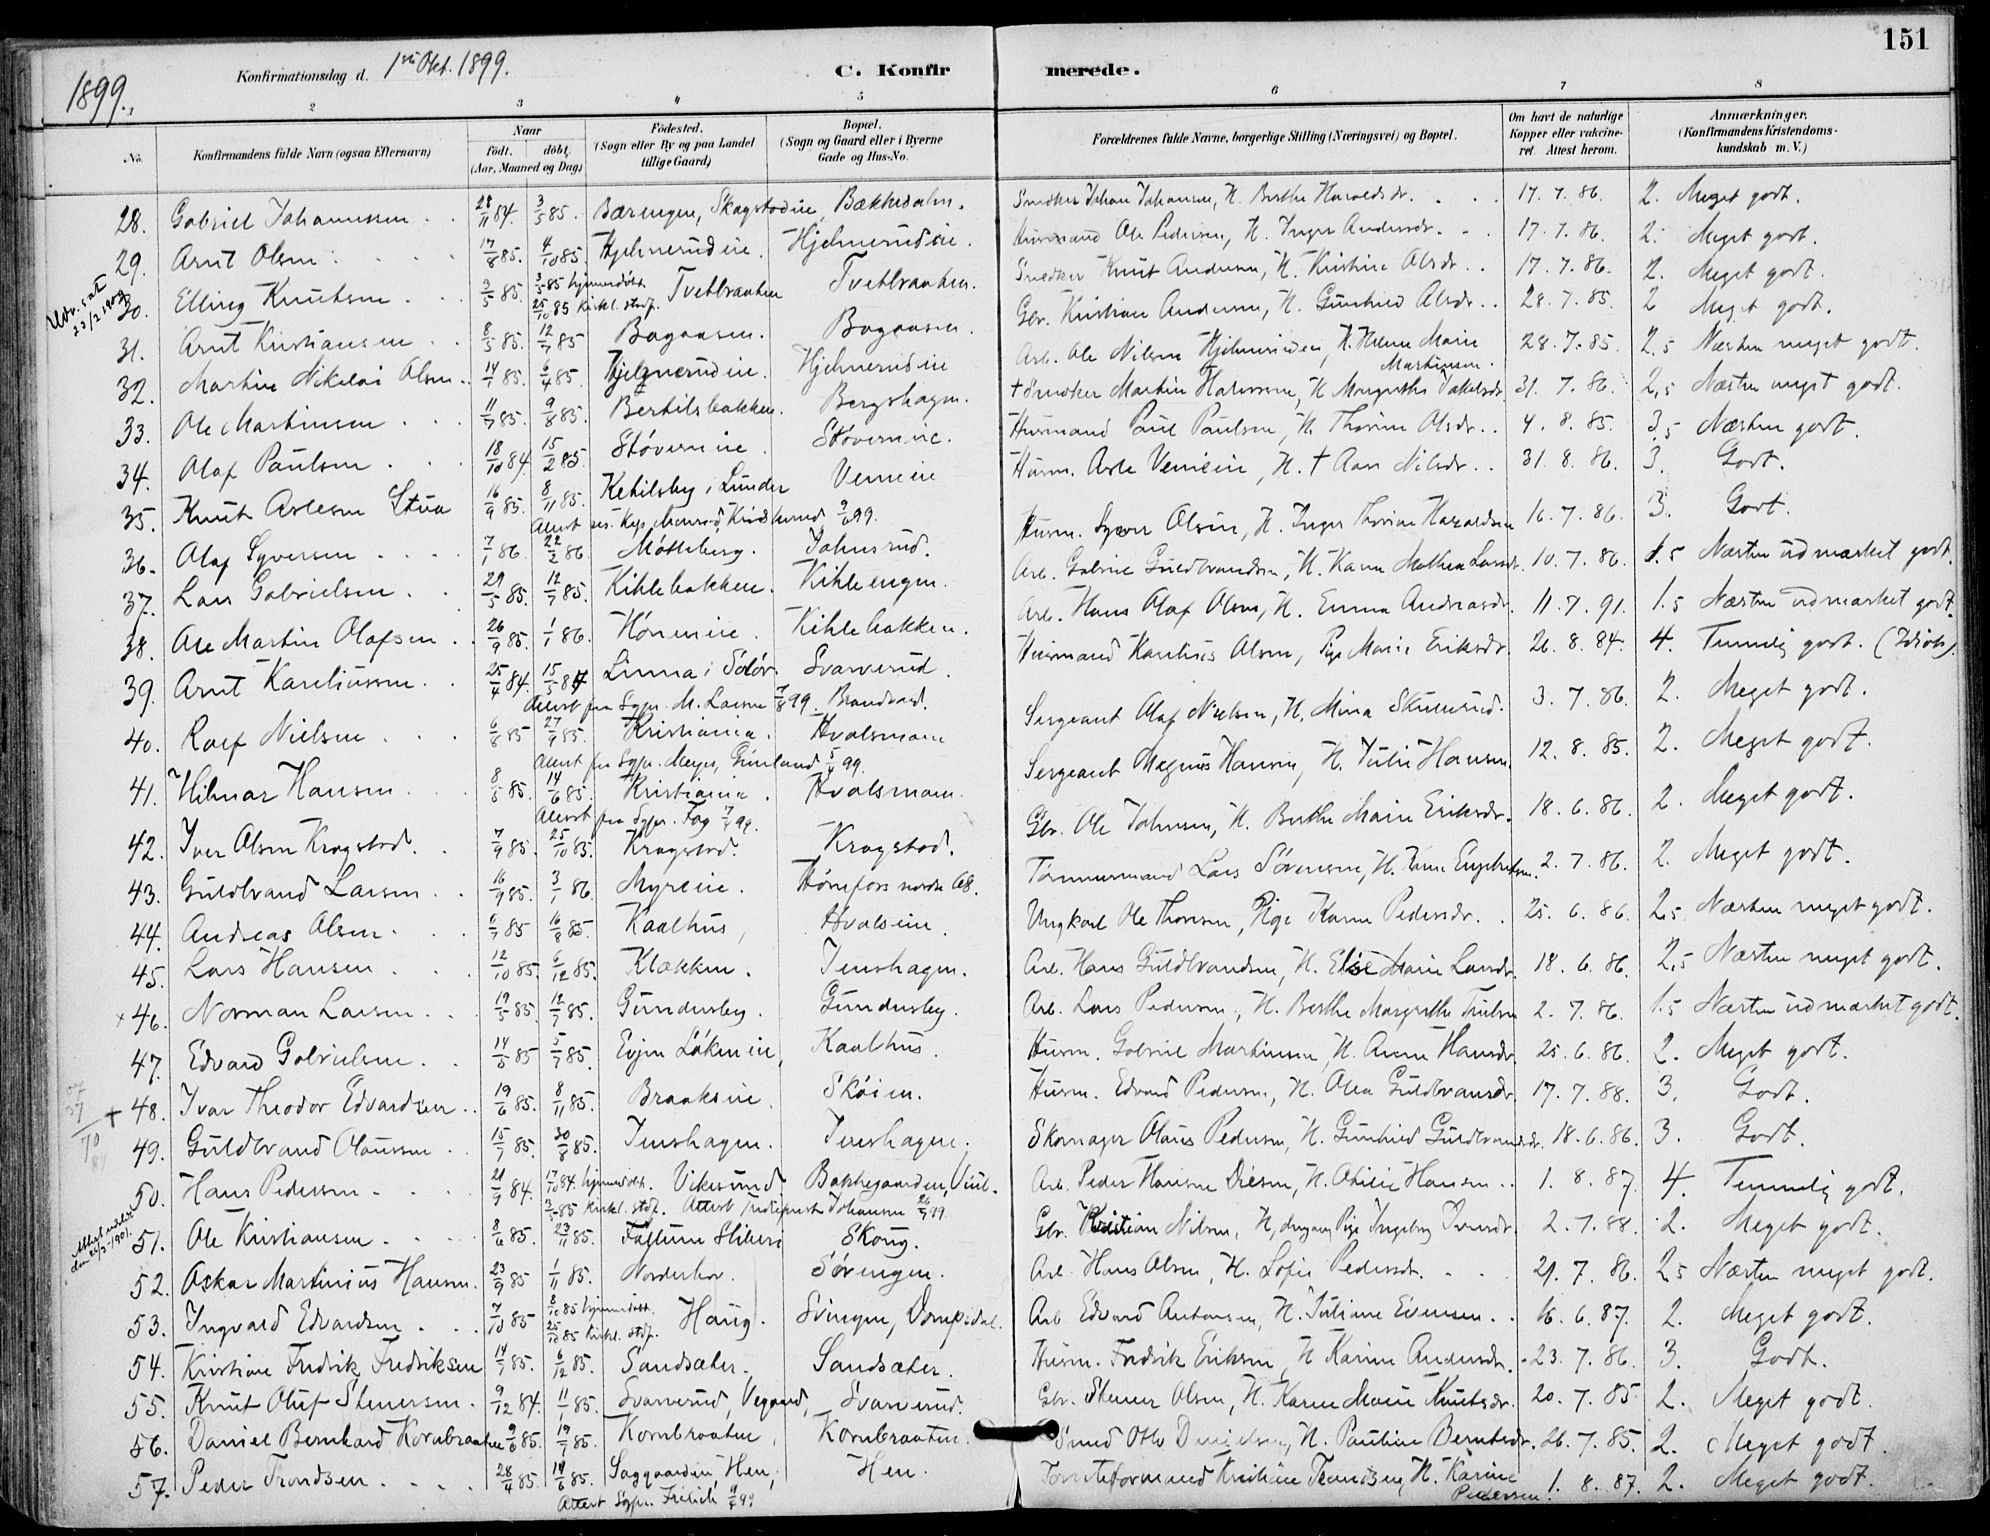 151
1899.
Konfirmationsdag d. 1ste Okt. 1899.
C. Konfirmerede.
2 3 4 5 6 7 8
No.
Konfirmandens fulde Navn (ogsaa Efternavn)
Naar
födt. döbt.
(Aar, Maaned og Dag)
Födested.
(Sogn eller By og paa Landet tillige Gaard)
Bopæl.
(Sogn og Gaard eller i Byerne Gade og Hus-No.
Forældrenes fulde Navne, borgerlige Stilling (Næringsvei) og Bopæl.
Om havt de naturlige Kopper eller vaccineret. Attest herom.
Anmærkninger,
(Konfirmandens Kristendomskundskab m. V.)
28. Gabriel Johannesen 28/11 84. 3/5 85. Bærengen, Skagstadeie, Bakkedalen. Snedker Johan Johansen, H. Berthe Haraldsdr. 17. 7. 86. 2. Meget godt.
29. Arnt Olsen 17/8 85. 4/10 85. Hjelmerudeie. Hjelmerudeie. Husmand Ole Pedersen, H. Inger Andersdr. 17. 7. 86. 2. Meget godt.
30. Elling Knutsen 3/5 85. 3/5 85 hjemmedøbt. 25/10 85 Kirkl. stadf. Tvetbraaten Tvetbraaten. Snedker Knut Andersen, H. Kristine Olsdr. 17. 7. 86. 2. Meget godt.
31. Arnt Kristiansen 8/5 85. 12/7 85 Bagaasen. Bagaasen. Gbr. Kristian Andersen, H. Gunhild Olsdr. 28. 7. 85. 2 Meget godt.
32. Martin Nikolai Olsen 14/1 85. 6/4 85. Hjelmerudeie. Hjelmerudeie Arb. Ole Nilsen Hjelmerudeie, H. Helene Marie Martinsen. 28. 7. 85. 2,5 Næsten meget godt.
33. Ole Martinsen 11/7 85. 9/8 85. Bertilsbakken. Bergshagen. † Snedker Martin Halvorsen, H. Margrethe Jakobsdr. 31. 7. 86. 2,5 Næsten meget godt.
34. Olaf Paulsen 18/10 84 15/2 85. Støverneie. Støverneie. Husmand Paul Paulsen, H. Thorine Olsdr. 4. 8. 85. 3,5 Næsten godt.
35. Knut Arlesen Stua 16/9 85. 8/11 85. Ketilsby i Lunder Vemeie Husm. Arle Vemeie, H. † Aase Nilsdr. 31. 8. 86. 3. Godt.
36. Olaf Syversen 7/1 86. 22/2 86. Møtteberg. Johnsrud. Husm. Syver Olsen, H. Inger Thorine Haraldsen 16. 7. 86. 3. Godt.
37. Lars Gabrielsen 29/5 85. 12/7 85. Kihlebakken. Kihleengen. Arb. Gabriel Guldbrandsen, H. Karen Mathea Larsdr. 10. 7. 86. 1.5 Næsten udmærket godt.
38. Ole Martin Olafsen 26/9 85. 1/1 86. Høneneie. Kihlebakken. Arb. Hans Olaf Olsen, H. Emma Andreasdr. 11. 7. 91. 1.5 Næsten udmærket godt.
39. Arnt Kareliussen 25/4 84. 15/5 84 Linna i Solør. Svarverud. Husmand Karelius Olsen, Pige Marie Eriksdr. 26. 8. 84. 4. Temmelig godt. (Idiot).
Attest fra Sgpr. M. Larsen 7/8 99. Brandvold.
40. Rolf Nielsen 6/8 85 27/9 85. Kristiania. Hvalsmoen Sergeant Olaf Nielsen, H. Mina Skinnerud. 3. 7. 86. 2. Meget godt.
Attest fra Sgpr. Meyer, Grønland 5/4 99.
41. Hilmar Hansen 8/5 85. 14/6 85. Kristiania. Hvalsmoen. Sergeant Magnus Hansen, H. Julie Hansen. 12. 8. 85. 2. Meget godt.
Attest fra Sgpr.
42. Iver Olsen Kragstad. 7/9 85. 25/10 85. Kragstad. Kragstad. Gbr. Ole Johnsen, H. Berthe Marie Eriksdr. 18. 6. 86. 2. Meget godt.
43. Guldbrand Larsen 16/9 85. 3/1 86. Myreie. Hønefos nordre Tømmermand Lars Sørensen, H. Engebretsen. 2. 7. 86. 2. Meget godt.
44. Andreas Olsen 6/7 85 16/8 85. Kaalhus, Hvalseie. Ungkarl Ole Thoresen, Pige Karen Pedersdr. 25. 6. 86. 2,5 Næsten meget godt.
45. Lars Hansen 12/10 85. 6/12 85. Klækken. Jenshagen. Arb. Hans Guldbrandsen, H. Elise Marie Larsdr. 18. 6. 86. 2,5 Næsten meget godt.
46. Norman Larsen 19/5 85. 12/7 85. Gundersby. Gundersby. Arb. Lars Pedersen, H. Berthe Margrethe 2. 7. 86. 1.5 Næsten udmærket godt.
47. Edvard Gabrielsen 14/5 85 5/7 85. Evjen Løkeneie, Kaalhus. Husm. Gabriel Martinsen, H. Anne Hansdr. 25. 6. 86. 2. Meget godt.
† 48. Ivar Theodor Edvardsen 19/6 85. 8/11 85. Braakseie. Skøien. Husm. Edvard Pedersen, H. Olea Guldbransdr. 17. 7. 88. 3. Godt.
49. Guldbrand Olaussen 15/7 85. 30/8 85. Jenshagen. Jenshagen. Skomager Olaus Pedersen, H. Gunhild Guldbrandsdr. 18. 6. 86. 3. Godt.
50. Hans Pedersen 21/9 84. hjemmedøbt. Vikesund Bakkegaarden, Arb. Peder Hansen H. Hansen 1. 8. 87. 4. Temmelig godt.
3/5 85 kirkl. stdf. Attest Johansen
51. Ole Kristiansen 8/6 85. 23/11 85. Skoug. Gbr. Kristian Nilsen, H, Pige Ingeborg 2. 7. 88. 2. Meget godt.
52. Oskar Martinius Hansen. 23/9 85 1/11 85. Norderhov. Sørengen. Arb. Hans Olsen, H. Sofie Pedersdr. 29. 7. 86. 2,5 Næsten meget godt.
53. Ingvald Edvardsen 7/10 85 8/10 85 hjemmedøbt. 25/10 85 kirkl. stdf. Haug. Svingen, Arb. Edvard Antonsen, H. Juliane Evensen. 16. 6. 87. 2. Meget godt.
54. Kristian Fredrik Fredriksen 14/7 85. 6/12 85. Sandsæter. Sandsæter. Husm. Fredrik Eriksen, H Karine Andersdr. 23. 7. 86. 3. Godt.
55. Knut Oluf Stenersen. 9/12 84. 11/1 85. Svarverud, Vegaard, Svarverud. Gbr. Stener Olsen, H. Karen Marie Knutsdr. 20. 7. 85 2. Meget godt.
56. Daniel Bernhard Kornbraaten 9/6 85. 19/7 85. Kornbraaten, Kornbraaten. Smed Otto Danielsen, H. Pauline Berntsdr. 26. 7. 85. 2. Meget godt.
57. Peder Trondsen 28/4 85. 14/6 85. Saggaarden, Hen, Hen. Tomteformand Kristian Trondsen, H. Karine Pedersen. 1. 8. 87. 2. Meget godt.
Attest Sgpr.